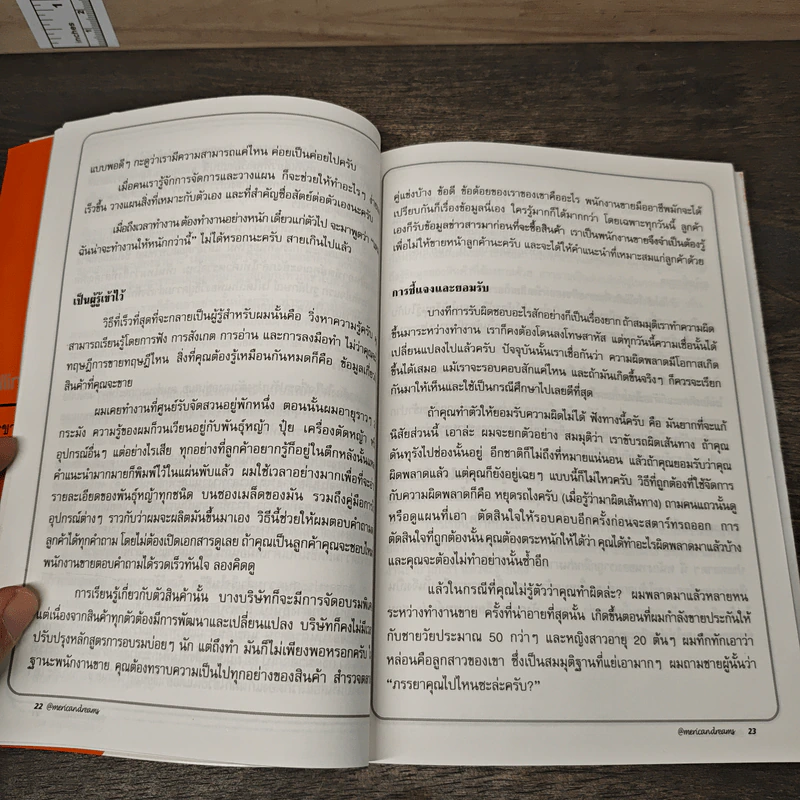 แบบพอดีๆ กะดูว่าเรามีความสามารถแค่ไหน ค่อยเป็นค่อยไปครับ
เมื่อคนเรารู้จักการจัดการและวางแผน ก็จะช่วยให้ทำอะไรๆ
เร็วขึ้น วางแผนสิ่งที่เหมาะกับตัวเอง และที่สำคัญซื่อสัตย์ต่อตัวเองนะครับ
เมื่อถึงเวลาทำงาน ต้องทำงานอย่างหนัก เดี๋ยวแก่ตัวไป จะมาพูดว่า
ฉันน่าจะทำงานให้หนักกว่านี้” ไม่ได้หรอกนะครับ สายเกินไปแล้ว
เป็นผู้รู้เข้าไว้
วิธีที่เร็วที่สุดที่จะกลายเป็นผู้รู้สำหรับผมนั้นคือ วิ่งหาความรู้ครับ
สามารถเรียนรู้โดยการฟัง การสังเกต การอ่าน และการลงมือทำ ไม่ว่าคุณจะ
ทฤษฎีการขายทฤษฎีไหน สิ่งที่คุณต้องรู้เหมือนกันหมดก็คือ ข้อมูลเกี่ยว
สินค้าที่คุณจะขาย
ผมเคยทำงานที่ศูนย์รับจัดสวนอยู่พักหนึ่ง ตอนนั้นผมอายุราวๆ
กระมัง ความรู้ของผมก็วนเวียนอยู่กับพันธุ์หญ้า ปุ๋ย เครื่องตัดหญ้า
อุปกรณ์อื่นๆ แต่อย่างไรเสีย ทุกอย่างที่ลูกค้าอยากรู้ก็อยู่ในตึกหลังนั้น
คำแนะนำมากมายก็พิมพ์ไว้ในแผ่นพับแล้ว ผมใช้เวลาอย่างมากเพื่อที่จะ
รายละเอียดของพันธุ์หญ้าทุกชนิด บนซองเมล็ดของมัน รวมถึงคู่มือการ
อุปกรณ์ต่างๆ ราวกับว่าผมจะผลิตมันขึ้นมาเอง วิธีนี้ช่วยให้ผมตอบคำถาม
ลูกค้าได้ทุกคำถาม โดยไม่ต้องเปิดเอกสารดูเลย ถ้าคุณเป็นลูกค้าคุณจะชอบไหม
พนักงานขายตอบคำถามได้รวดเร็วทันใจ ลองคิดดู
การเรียนรู้เกี่ยวกับตัวสินค้านั้น บางบริษัทก็จะมีการจัดอบรม
แต่เนื่องจากสินค้าทุกตัวต้องมีการพัฒนาและเปลี่ยนแปลง บริษัทก็คงไม่มี
ปรับปรุงหลักสูตรการอบรมบ่อยๆ นัก แต่ถึงทำ มันก็ไม่เพียงพอหรอกครับ
ฐานะพนักงานขาย คุณต้องทราบความเป็นไปทุกอย่างของสินค้า สำรวจตลาด
22 @mericandreams
คู่แข่งบ้าง ข้อดี ข้อด้อยของเราของเขาคืออะไร พนักงานขายมืออาชีพมักจะได้
เปรียบกันก็เรื่องข้อมูลนี่เอง ใครรู้มากก็ได้มากกว่า โดยเฉพาะทุกวันนี้ ลูกค้า
เองก็รับข้อมูลข่าวสารมาก่อนที่จะซื้อสินค้า เราเป็นพนักงานขายจึงจำเป็นต้องรู้
เพื่อไม่ให้ขายหน้าลูกค้านะครับ และจะได้ให้คำแนะนำที่เหมาะสมแก่ลูกค้าด้วย
การชี้แจงและยอมรับ
บางทีการรับผิดชอบอะไรสักอย่างก็เป็นเรื่องยาก ถ้าสมมุติเราทำความผิด
ขึ้นมาระหว่างทำงาน เราก็คงต้องโดนลงโทษสาหัส แต่ทุกวันนี้ความเชื่อนั้นได้
เปลี่ยนแปลงไปแล้วครับ ปัจจุบันนั้นเราเชื่อกันว่า ความผิดพลาดมีโอกาสเกิด
ขึ้นได้เสมอ แม้เราจะรอบคอบสักแค่ไหน และถ้ามันเกิดขึ้นจริงๆ ก็ควรจะเรียก
กันมาให้เห็นและใช้เป็นกรณีศึกษาไปเลยดีที่สุด
ถ้าคุณทำตัวให้ยอมรับความผิดไม่ได้ ฟังทางนี้ครับ คือ มันยากที่จะแก้
นิสัยส่วนนี้ เอาล่ะ ผมจะยกตัวอย่าง สมมุติว่า เราขับรถผิดเส้นทาง ถ้าคุณ
ดันทุรังไปช่องนั้นอยู่ อีกชาติก็ไม่ถึงที่หมายแน่นอน แล้วถ้าคุณยอมรับว่าคุณ
ผิดพลาดแล้ว แต่คุณก็ยังอยู่เฉยๆ แบบนี้ก็ไม่ไหวครับ วิธีที่ถูกต้องที่ใช้จัดการ
กับความผิดพลาดก็คือ หยุดรถไงครับ (เมื่อรู้ว่ามาผิดเส้นทาง) ถามคนแถวนั้นดู
หรือดูแผนที่เอา ตัดสินใจให้รอบคอบอีกครั้งก่อนจะสตาร์ทรถออก การ
ตัดสินใจที่ถูกต้องนั้น คุณต้องตระหนักให้ได้ว่า คุณได้ทำอะไรผิดพลาดมาแล้วบ้าง
และคุณจะต้องไม่ทำอย่างนั้นซ้ำอีก
แล้วในกรณีที่คุณไม่รู้ตัวว่าคุณทำผิดล่ะ? ผมพลาดมาแล้วหลายหน
ระหว่างทำงานขาย ครั้งที่น่าอายที่สุดนั้น เกิดขึ้นตอนที่ผมกำลังขายประกันให้
กับชายวัยประมาณ 50 กว่าๆ และหญิงสาวอายุ 20 ต้นๆ ผมทึกทักเอาว่า
หล่อนคือลูกสาวของเขา ซึ่งเป็นสมมุติฐานที่แย่เอามากๆ ผมถามชายผู้นั้นว่า
“ภรรยาคุณไปไหนซะล่ะครับ?”
@mericandreams 23
inches
1